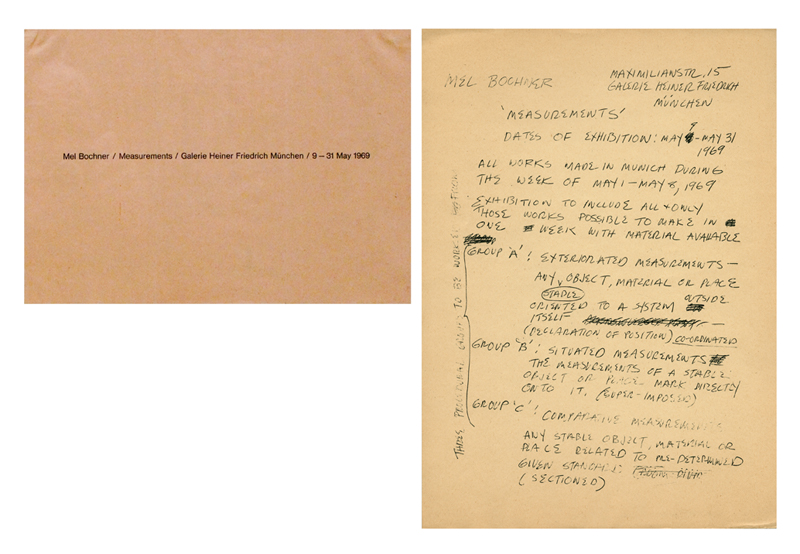 Mel Bochner / Measurements / Galerie Heiner Friedrich München / 9 – 31 May 1969
MEL BOCHNER
MAXIMILIANSTR. 15
GALERIE HEINER FRIEDRICH
MÜNCHEN
'MEASUREMENTS'
DATES OF EXHIBITION: MAY 9 – MAY 31
1969
ALL WORKS MADE IN MUNICH DURING
THE WEEK OF MAY 1 – MAY 8, 1969
EXHIBITION TO INCLUDE ALL + ONLY
THOSE WORKS POSSIBLE TO MAKE IN
ONE WEEK WITH MATERIAL AVAILABLE
GROUP 'A': EXTERIORATED MEASUREMENTS –
ANY STABLE OBJECT, MATERIAL OR PLACE
ORIENTED TO A SYSTEM OUTSIDE
ITSELF –
(DECLARATION OF POSITION) CO-ORDINATED
GROUP 'B': SITUATED MEASUREMENTS
THE MEASUREMENTS OF A STABLE
OBJECT OR PLACE MARK DIRECTLY
ONTO IT. (SUPER-IMPOSED)
GROUP 'C': COMPARATIVE MEASUREMENTS
ANY STABLE OBJECT, MATERIAL OR
PLACE RELATED TO PRE-DETERMINED
GIVEN STANDARD
(SECTIONED)
THREE PROCEDURAL GROUPS TO BE WORKED